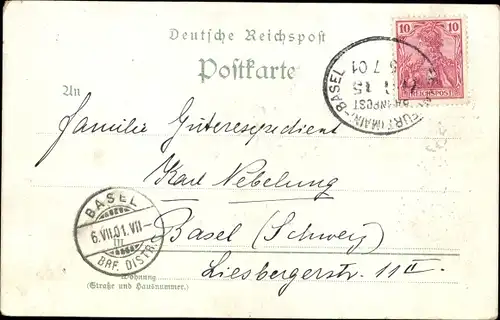 Deutsche Reichspost
Postkarte
10 10
REICHSPOST
FURT (MAIN)-BASEL
BAHNPOST
15
5 7 01
An
Familie Güterexpedient
Karl Nebelung
Basel (Schweiz)
Liesbergerstr. 11 II
BASEL
6.VII.01.VII-
III
BRF. DISTR.
Wohnung
(Straße und Hausnummer.)